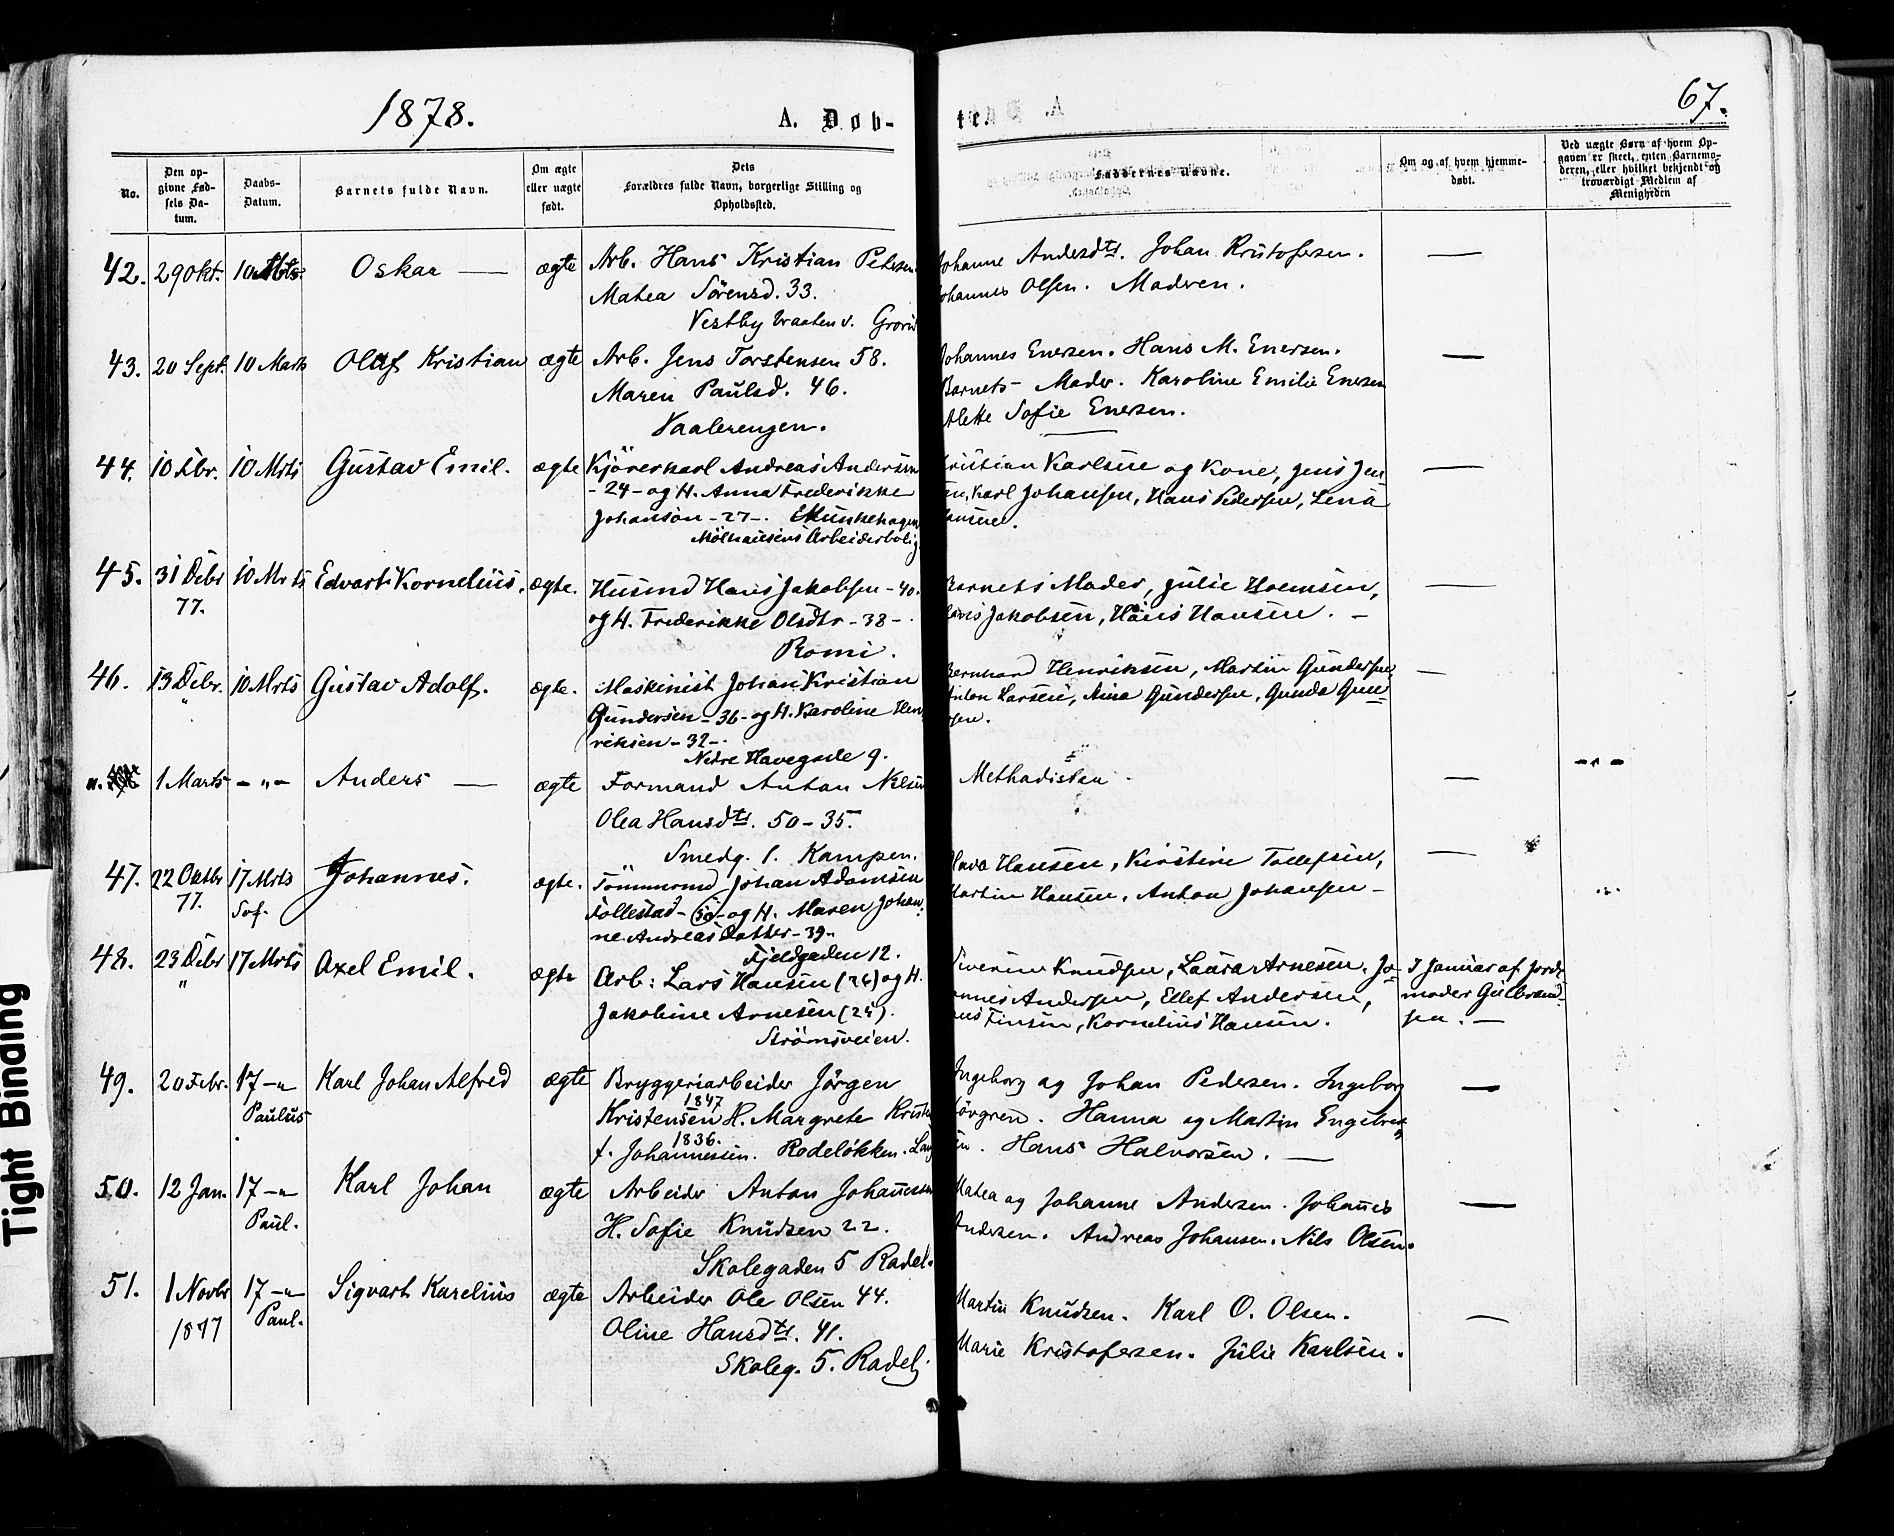 1878.
A. Døb-
te.
67.
No.
Den op-
givne Fød-
sels Da-
tum.
Daabs-
Datum.
Barnets fulde Navn.
Om ægte
eller uægte
født.
Dets
Forældres fulde Navn, borgerlige Stilling og
Opholdssted.
Faddernes Navne.
Om og af hvem hjemme-
døbt.
Ved uægte Børn af hvem Op-
gaven er skeet, enten Barnemo-
deren, eller hvilket bekjendt og
troværdigt Medlem af
Menigheden
42. 29 Okt. 10 Mts. Oskar — ægte Arb. Hans Kristian Petersen. Johanne Andersdts. Johan Kristofersen. —
Matea Sörensd. 33. Johannes Olsen. Moderen.
Vestby braaten v. Grorud
43. 20 Sept. 10 Marts Olaf Kristian ægte Arb. Jens Torstensen 58. Johannes Enersen. Hans M. Enersen. —
Maren Paulsd. 46. Barnets- Moder. Karoline Emilie Enersen
Vaalerengen. Alette Sofie Enersen.
44. 10 Dbr. 10 Mrts Gustav Emil. ægte Kjörerkarl Andreas Andersen Kristian Karlsen og Kone, Jens Jen-
- 24 - og H. Anna Frederikke sen, Karl Johansen, Hans Pedersen, Lena
Johanson - 27 -. Munkehagen
Mölhausens Arbeiderbolig
45. 31 Dcbr 10 Mrts Edvart Kornelius. ægte. Husmd Hans Jakobsen - 40. Barnets Moder, Julie Hansen, —
77. og H. Frederikke Olsdtr - 38 -. Jakobsen, Hans Hansen. —
Romi.
46. 13 Dcbr. 10 Mrts Gustav Adolf. ægte. Maskinist Johan Kristian Bernhard Henriksen, Martin Gundersen, —
" Gundersen - 36 - og H. Karoline Hen Anton Larsen, Anna Gundersen, Gunda Gun=
riksen - 32 -. sen.
Nedre Havegade 9.
1 Marts - " - Anders — ægte Formand Anton Nilsen Methodisten. —
Olea Hansdts. 50 - 35.
Smedg. 1. Kampen.
47. 22 Oktbr 17 Mrts Johannes. ægte. Tömmermd Johan Adamsen Hansen, Kirstine Tollefsen, —
77. Sof. Tollestad - (50 - og H. Maren Johan= Martin Hansen, Anton Johansen -
ne Andreas Datter - 39 -
Fjeldgaden 12.
48. 23 Dcbr 17 Mrts Axel Emil. ægte Arb: Lars Hansen (26) og H. Severine Knudsen, Laura Arnesen, Jo= 7 Januar af Jord-
" Jakobine Arnesen (25). Andersen, Ellef Andersen, moder Gulbrand-
Strömsveien. Finsen, Kornelius Hansen. sen. —
49. 20 Febr. 17 - " Karl Johan Alfred ægte Bryggeriarbeider Jörgen Ingeborg og Johan Pedersen. Ingeborg —
Paulus 1847
Kristensen H. Margrete Jörgren. Hanna og Martin Engebret
1836.
f. Johannessen. Rodelökken. sen. Hans Halvorsen. —
50. 12 Jan. 17 - " Karl Johan ægte Arbeider Anton Johannessen Matea og Johanne Andersen. Johannes —
Paul. H. Sofie Knudsen 22. Andersen. Andreas Johansen. Nils Olsen.
Skolegaden 5 Rodel.
51. 1 Novbr 17 - " Sigvart Karelius ægte Arbeider Ole Olsen 44. Martin Knudsen. Karl O. Olsen. —
1877 Paul. Oline Hansdts. 41. Marie Kristofersen. Julie Karlsen.
Skoleg. 5. Rodel.
Tight Binding